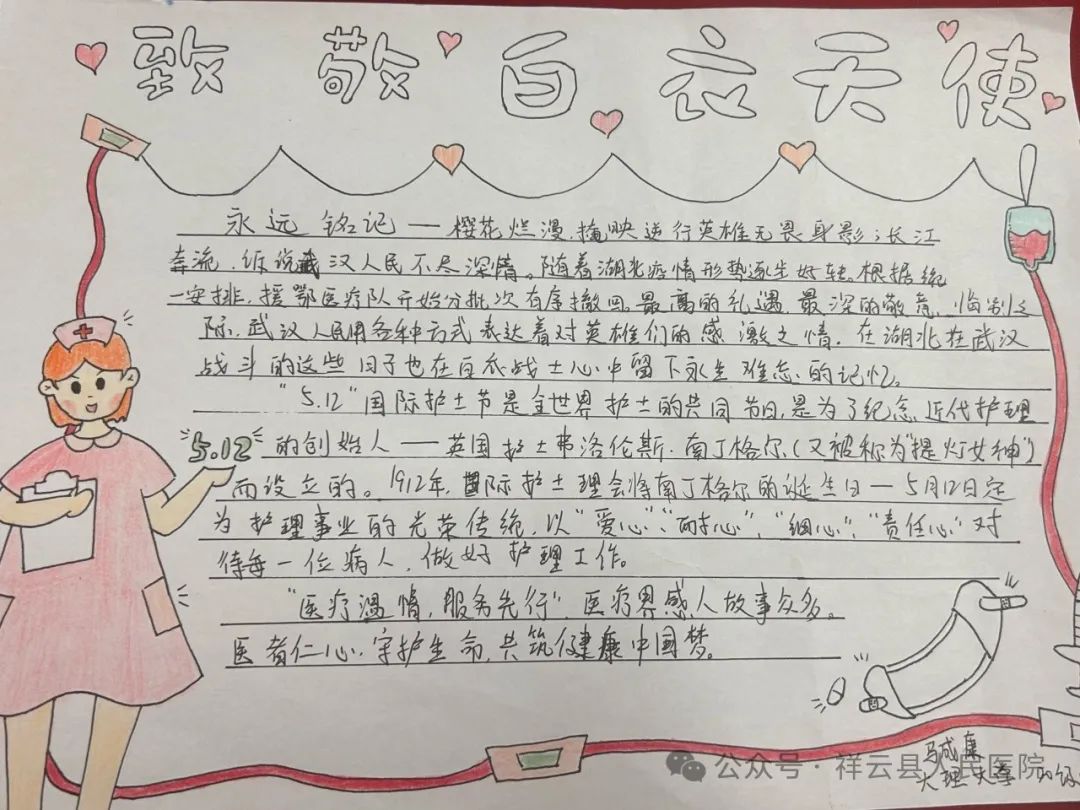 致敬白衣天使
永远铭记——樱花烂漫,掩映逆行英雄无畏身影;长江
奔流,诉说武汉人民不尽深情。随着湖北疫情形势逐步好转。根据统
一安排,援鄂医疗队开始分批次有序撤回。最高的礼遇,最深的敬意,临别之
际,武汉人民用各种方式表达着对英雄们的感激之情,在湖北在武汉
战斗的这些日子也在白衣战士心中留下永生难忘的记忆。
"5.12"国际护士节是全世界护士的共同节日,是为了纪念近代护理
5.12
的创始人——英国护士弗洛伦斯·南丁格尔(又被称为"提灯女神")
而设立的。1912年,国际护士理会将南丁格尔的诞生日—5月12日定
为护理事业的光荣传统,以"爱心"、"耐心"、"细心"、"责任心"对
待每一位病人,做好护理工作。
"医疗温情,服务先行",医疗界感人故事众多。
医者仁心,守护生命,共筑健康中国梦。
公众号·祥云县人民医院
大理大学